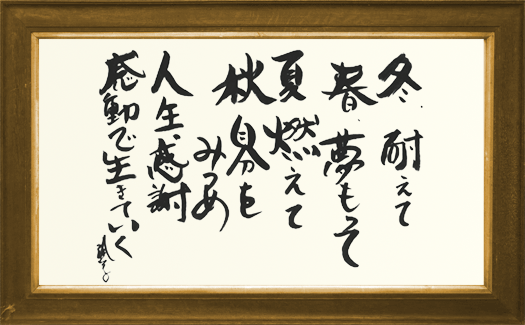 冬、耐えて
春、夢もって
夏燃えて
秋自分を
みつめ
人生、感謝
感動で生きていく